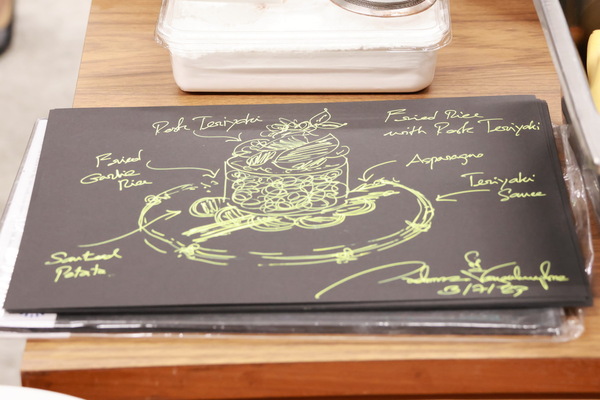 Pork Teriyaki
Fried Rice
with Pork Teriyaki
Fried
Garlic
Rice
Asparagus
Teriyaki
Sauce
Sauteed
Potato